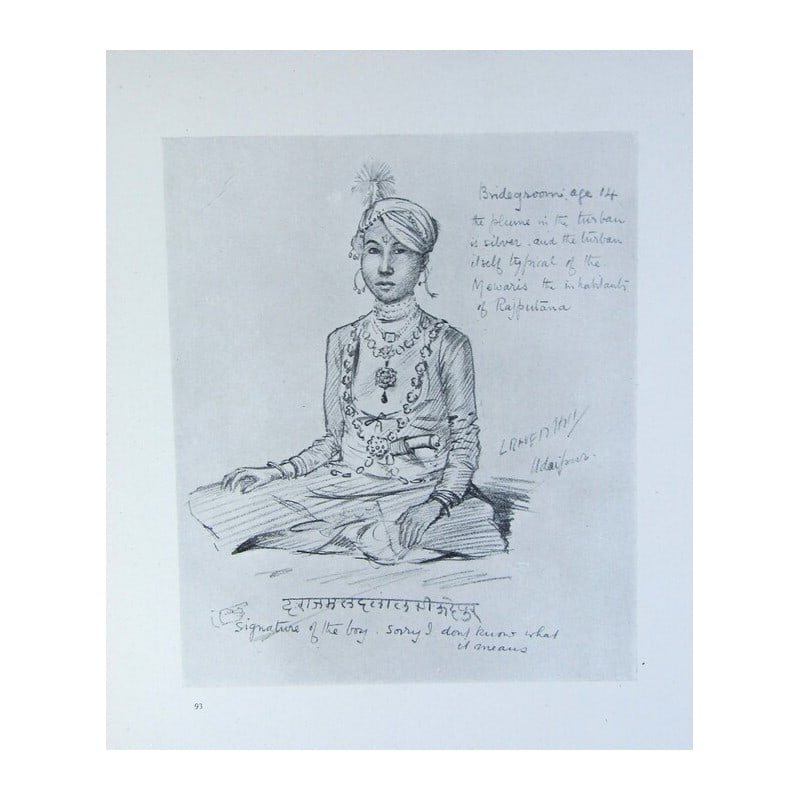 Bridegroom, age 14
the plume in the turban
is silver . and the turban
itself typical of the
Mewaris the inhabitants
of Rajputana
Udaipur.
Signature of the boy . Sorry I dont know what
it means
93